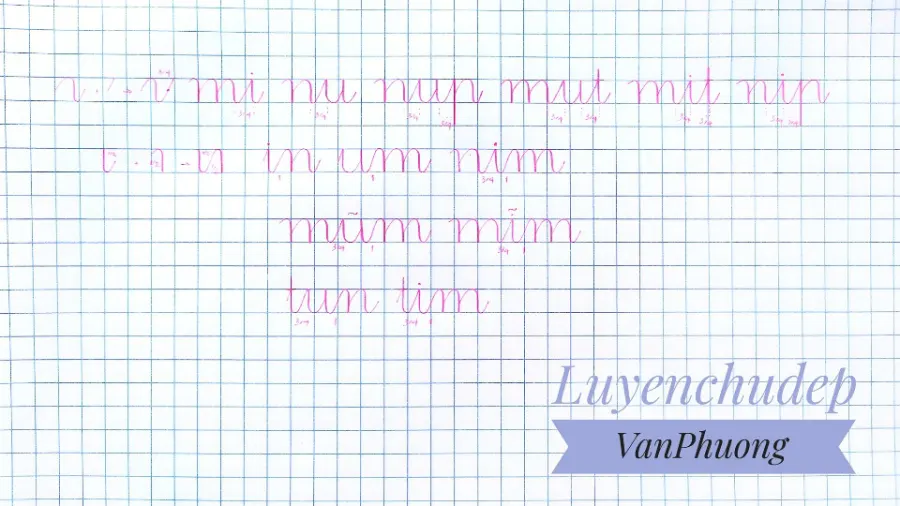 mi nu nup mut mit nip
in um nim
mũm mĩm
tun tim
Luyenchudep
VanPhuong